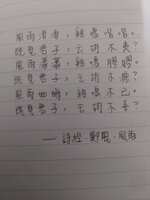 風雨淒淒，雞鳴喈喈。
既見君子，云胡不夷？
風雨瀟瀟，雞鳴膠膠。
既見君子，云胡不瘳？
風雨如晦，雞鳴不已。
既見君子，云胡不喜？
——詩經·鄭風·風雨